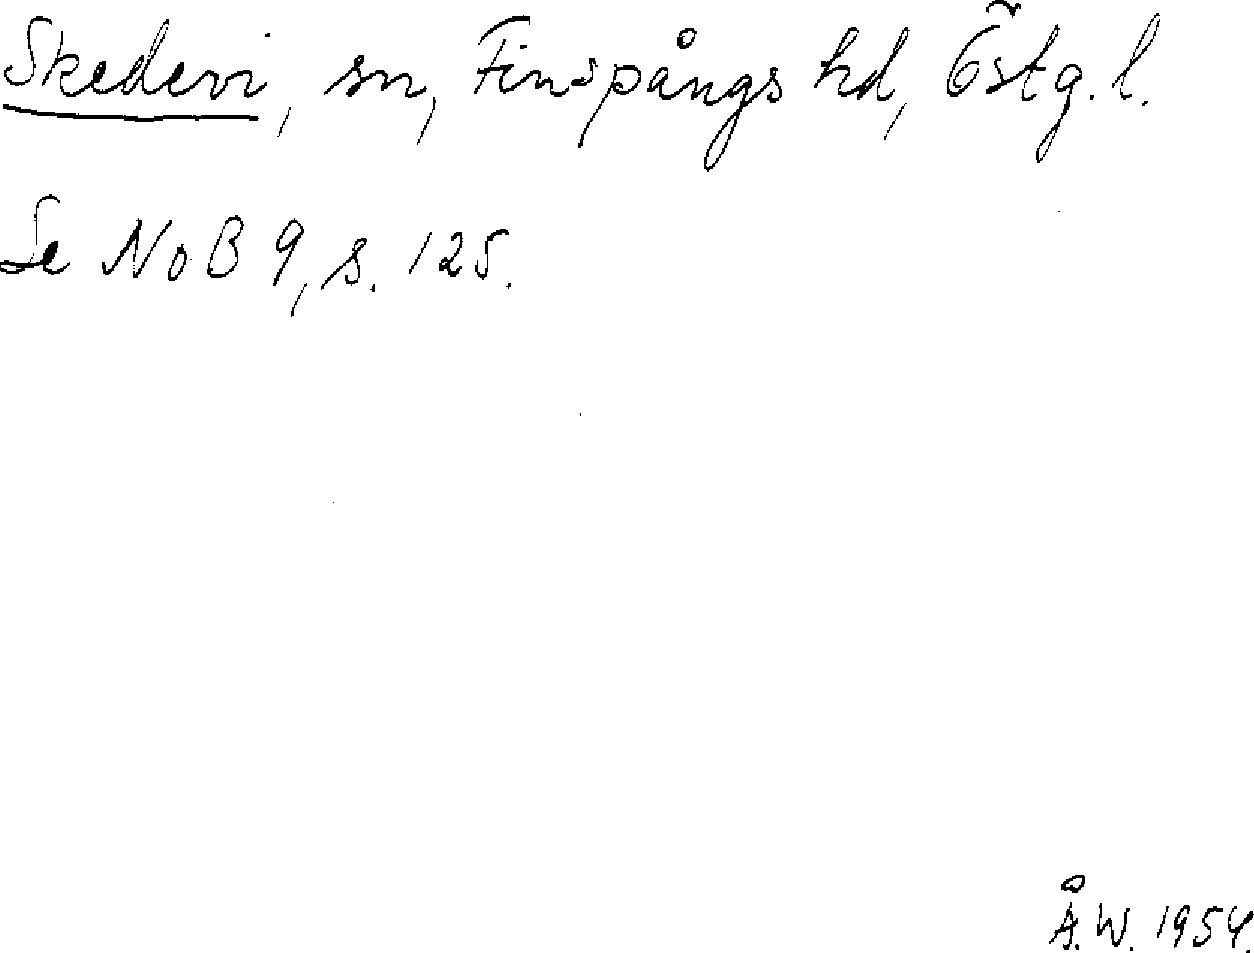 Skedevi, sn, Finspångs hd, Östg. l.
Se NoB 9, s. 125.
Å.W. 1954.